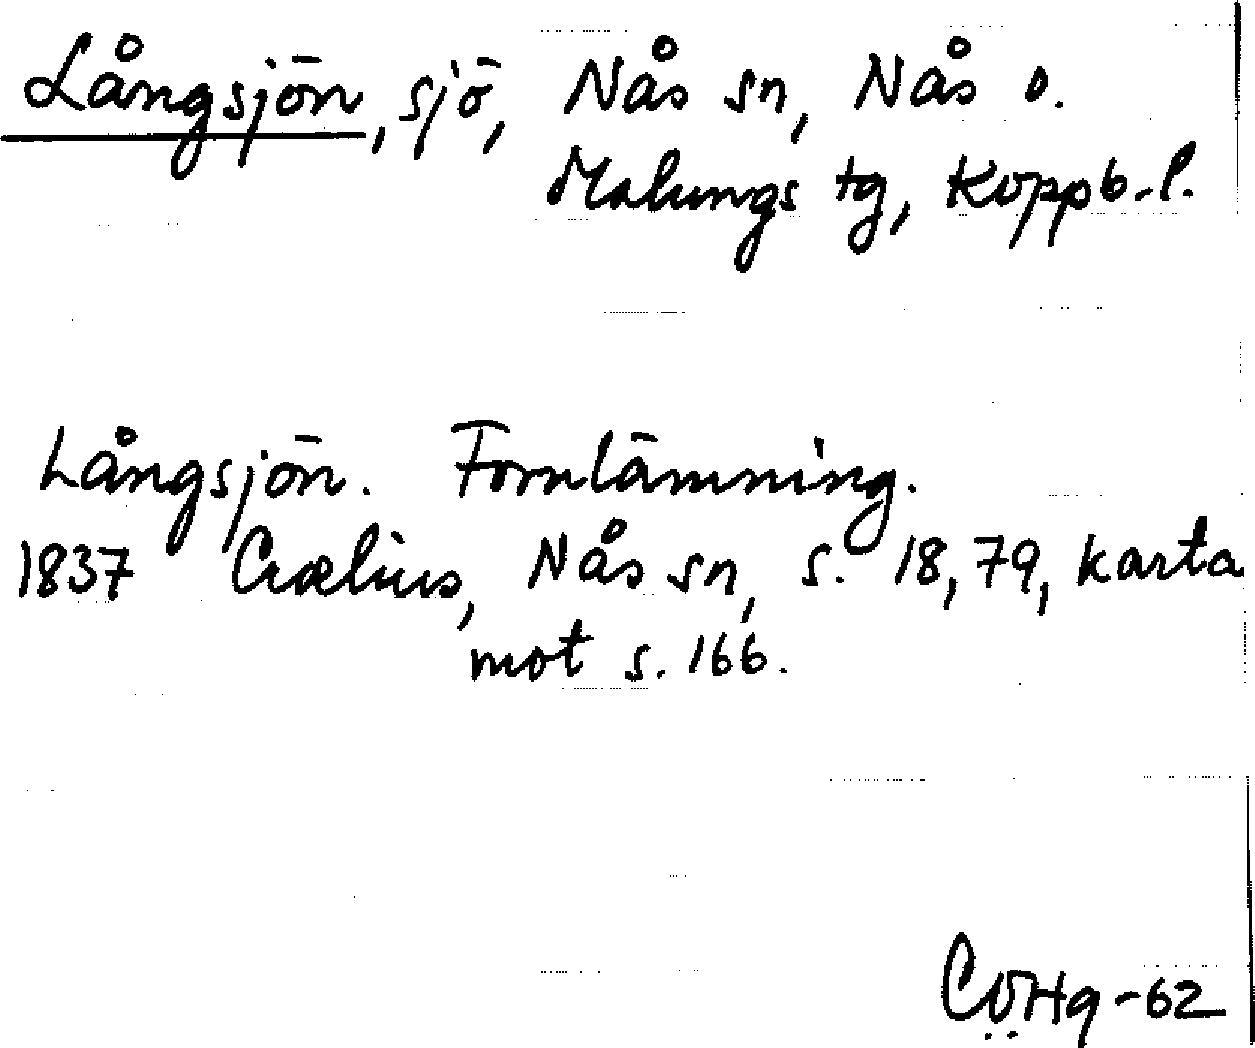 Långsjön, sjö, Nås sn, Nås o.
Malungs tg, Koppb.l.
Långsjön. Fornlämning.
1837 Crælius, Nås sn, s. 18, 79, karta
mot s. 166.
CÖHq-62